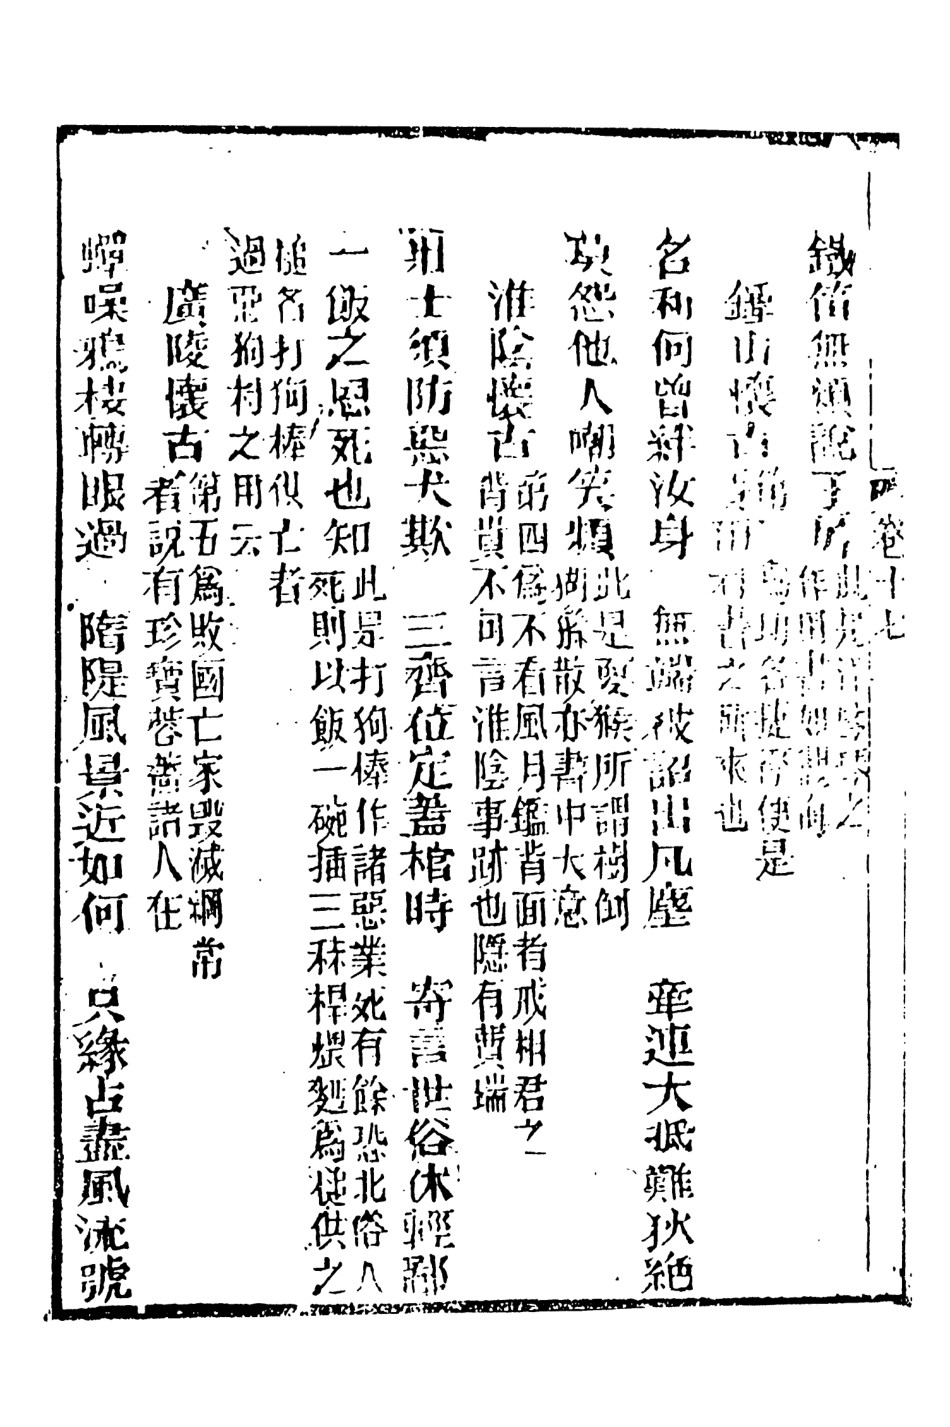 卷十七
鐵笛無煩說了
此是
鍾山懷古
爲功名
名利何曾絆汝身　無端被詔出凡塵　牽連大抵難狄絕
怨他人嘲笑頻
此是耍猴所謂樹倒
猢猻散亦書中大意
淮陰懷古
第四爲不看風月鑑背面者戒相君之
背貴不可言淮陰事跡也隱有賈瑞
壯士須防惡犬欺　三齊位定蓋棺時　寄言世俗休輕鄙
一飯之恩死也知
此是打狗棒作諸惡業死有餘恐北俗人
死則以飯一碗插三秫桿煨麪爲槌供之
槌名打狗棒供亡者
過惡狗村之用云
廣陵懷古
第五爲敗國亡家毀滅綱常
者說有珍寶蓉薔諸人在
蟬噪鴉棲轉眼過　隋隄風景近如何　只緣占盡風流號